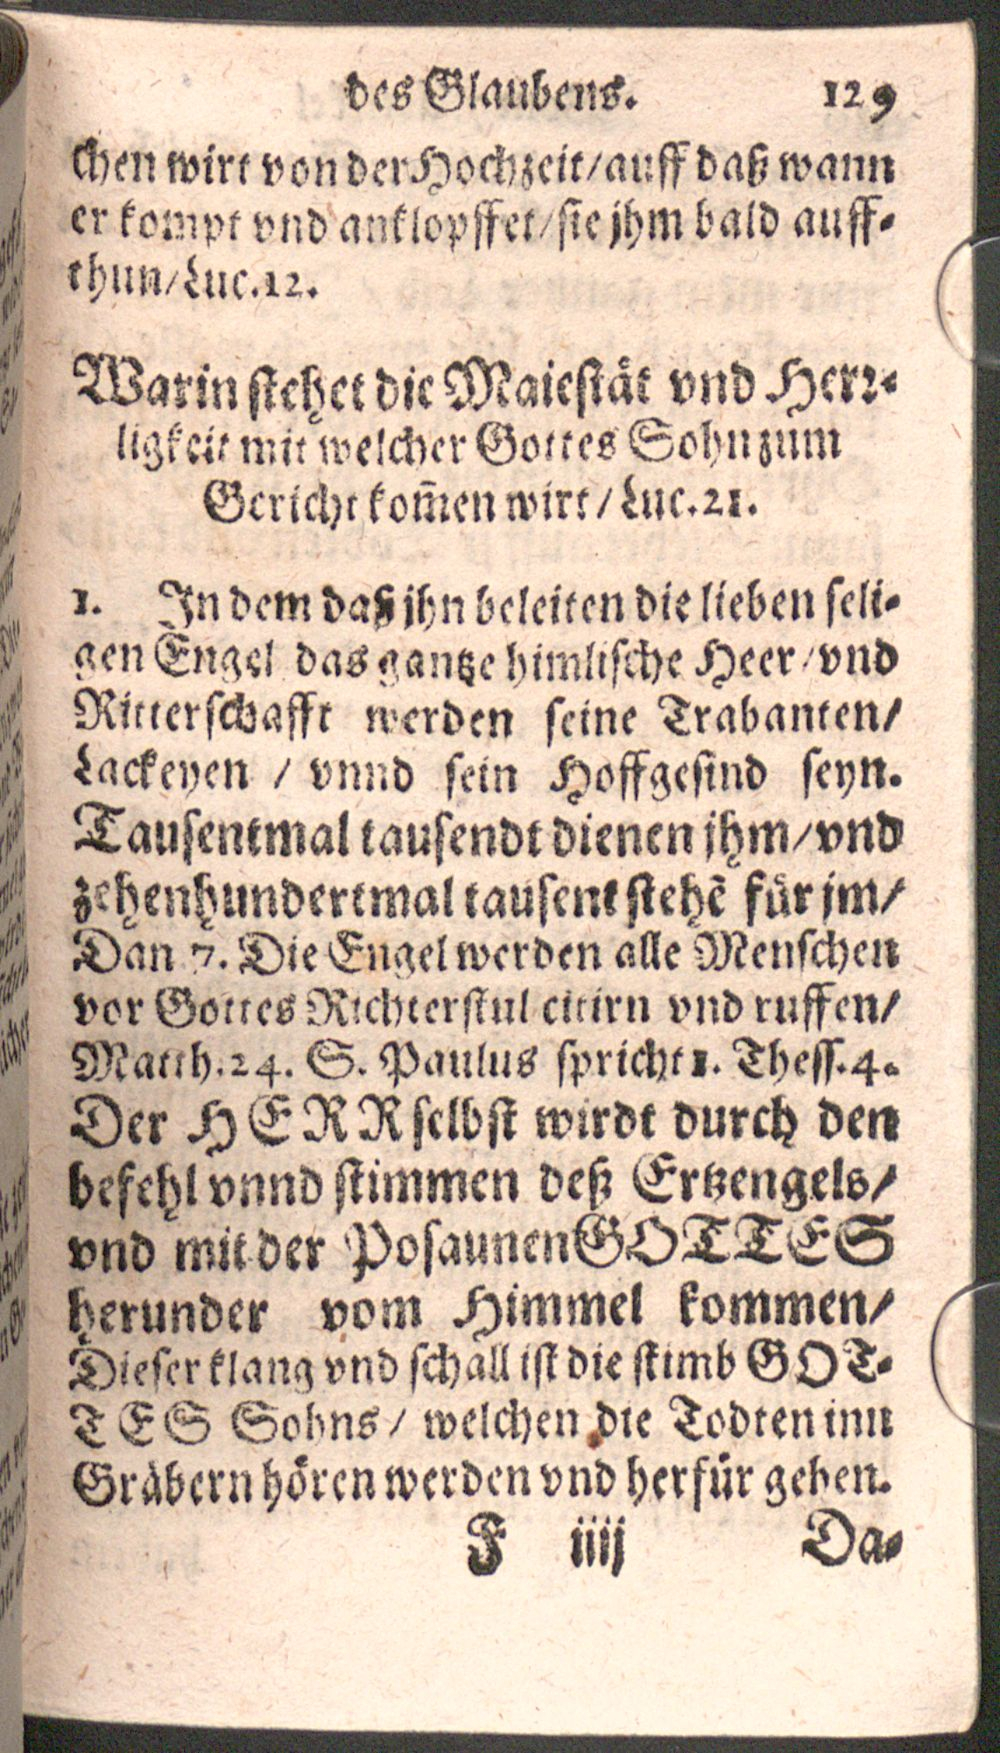 des Glaubens. 129
chen wirt von der Hochzeit/auff daß wann
er kompt vnd anklopffet/sie jhm bald auff-
thun/Luc.12.
Warin stehet die Maiestät vnd Herr-
ligkeit mit welcher Gottes Sohn zum
Gericht kom̃en wirt/Luc.21.
1. In dem daß jhn beleiten die lieben seli-
gen Engel das gantze himlische Heer/vnd
Ritterschafft werden seine Trabanten/
Lackeyen / vnnd sein Hoffgesind seyn.
Tausentmal tausendt dienen jhm/vnd
zehenhundertmal tausent stehẽ für jm/
Dan 7. Die Engel werden alle Menschen
vor Gottes Richterstul citirn vnd ruffen/
Matth.24. S. Paulus spricht 1. Thess.4.
Der HERR selbst wirdt durch den
befehl vnnd stimmen deß Ertzengels/
vnd mit der Posaunen GOTTES
herunder vom Himmel kommen/
Dieser klang vnd schall ist die stimb GOT-
TES Sohns/ welchen die Todten inn
Gräbern hören werden vnd herfür gehen.
F iiij Da-